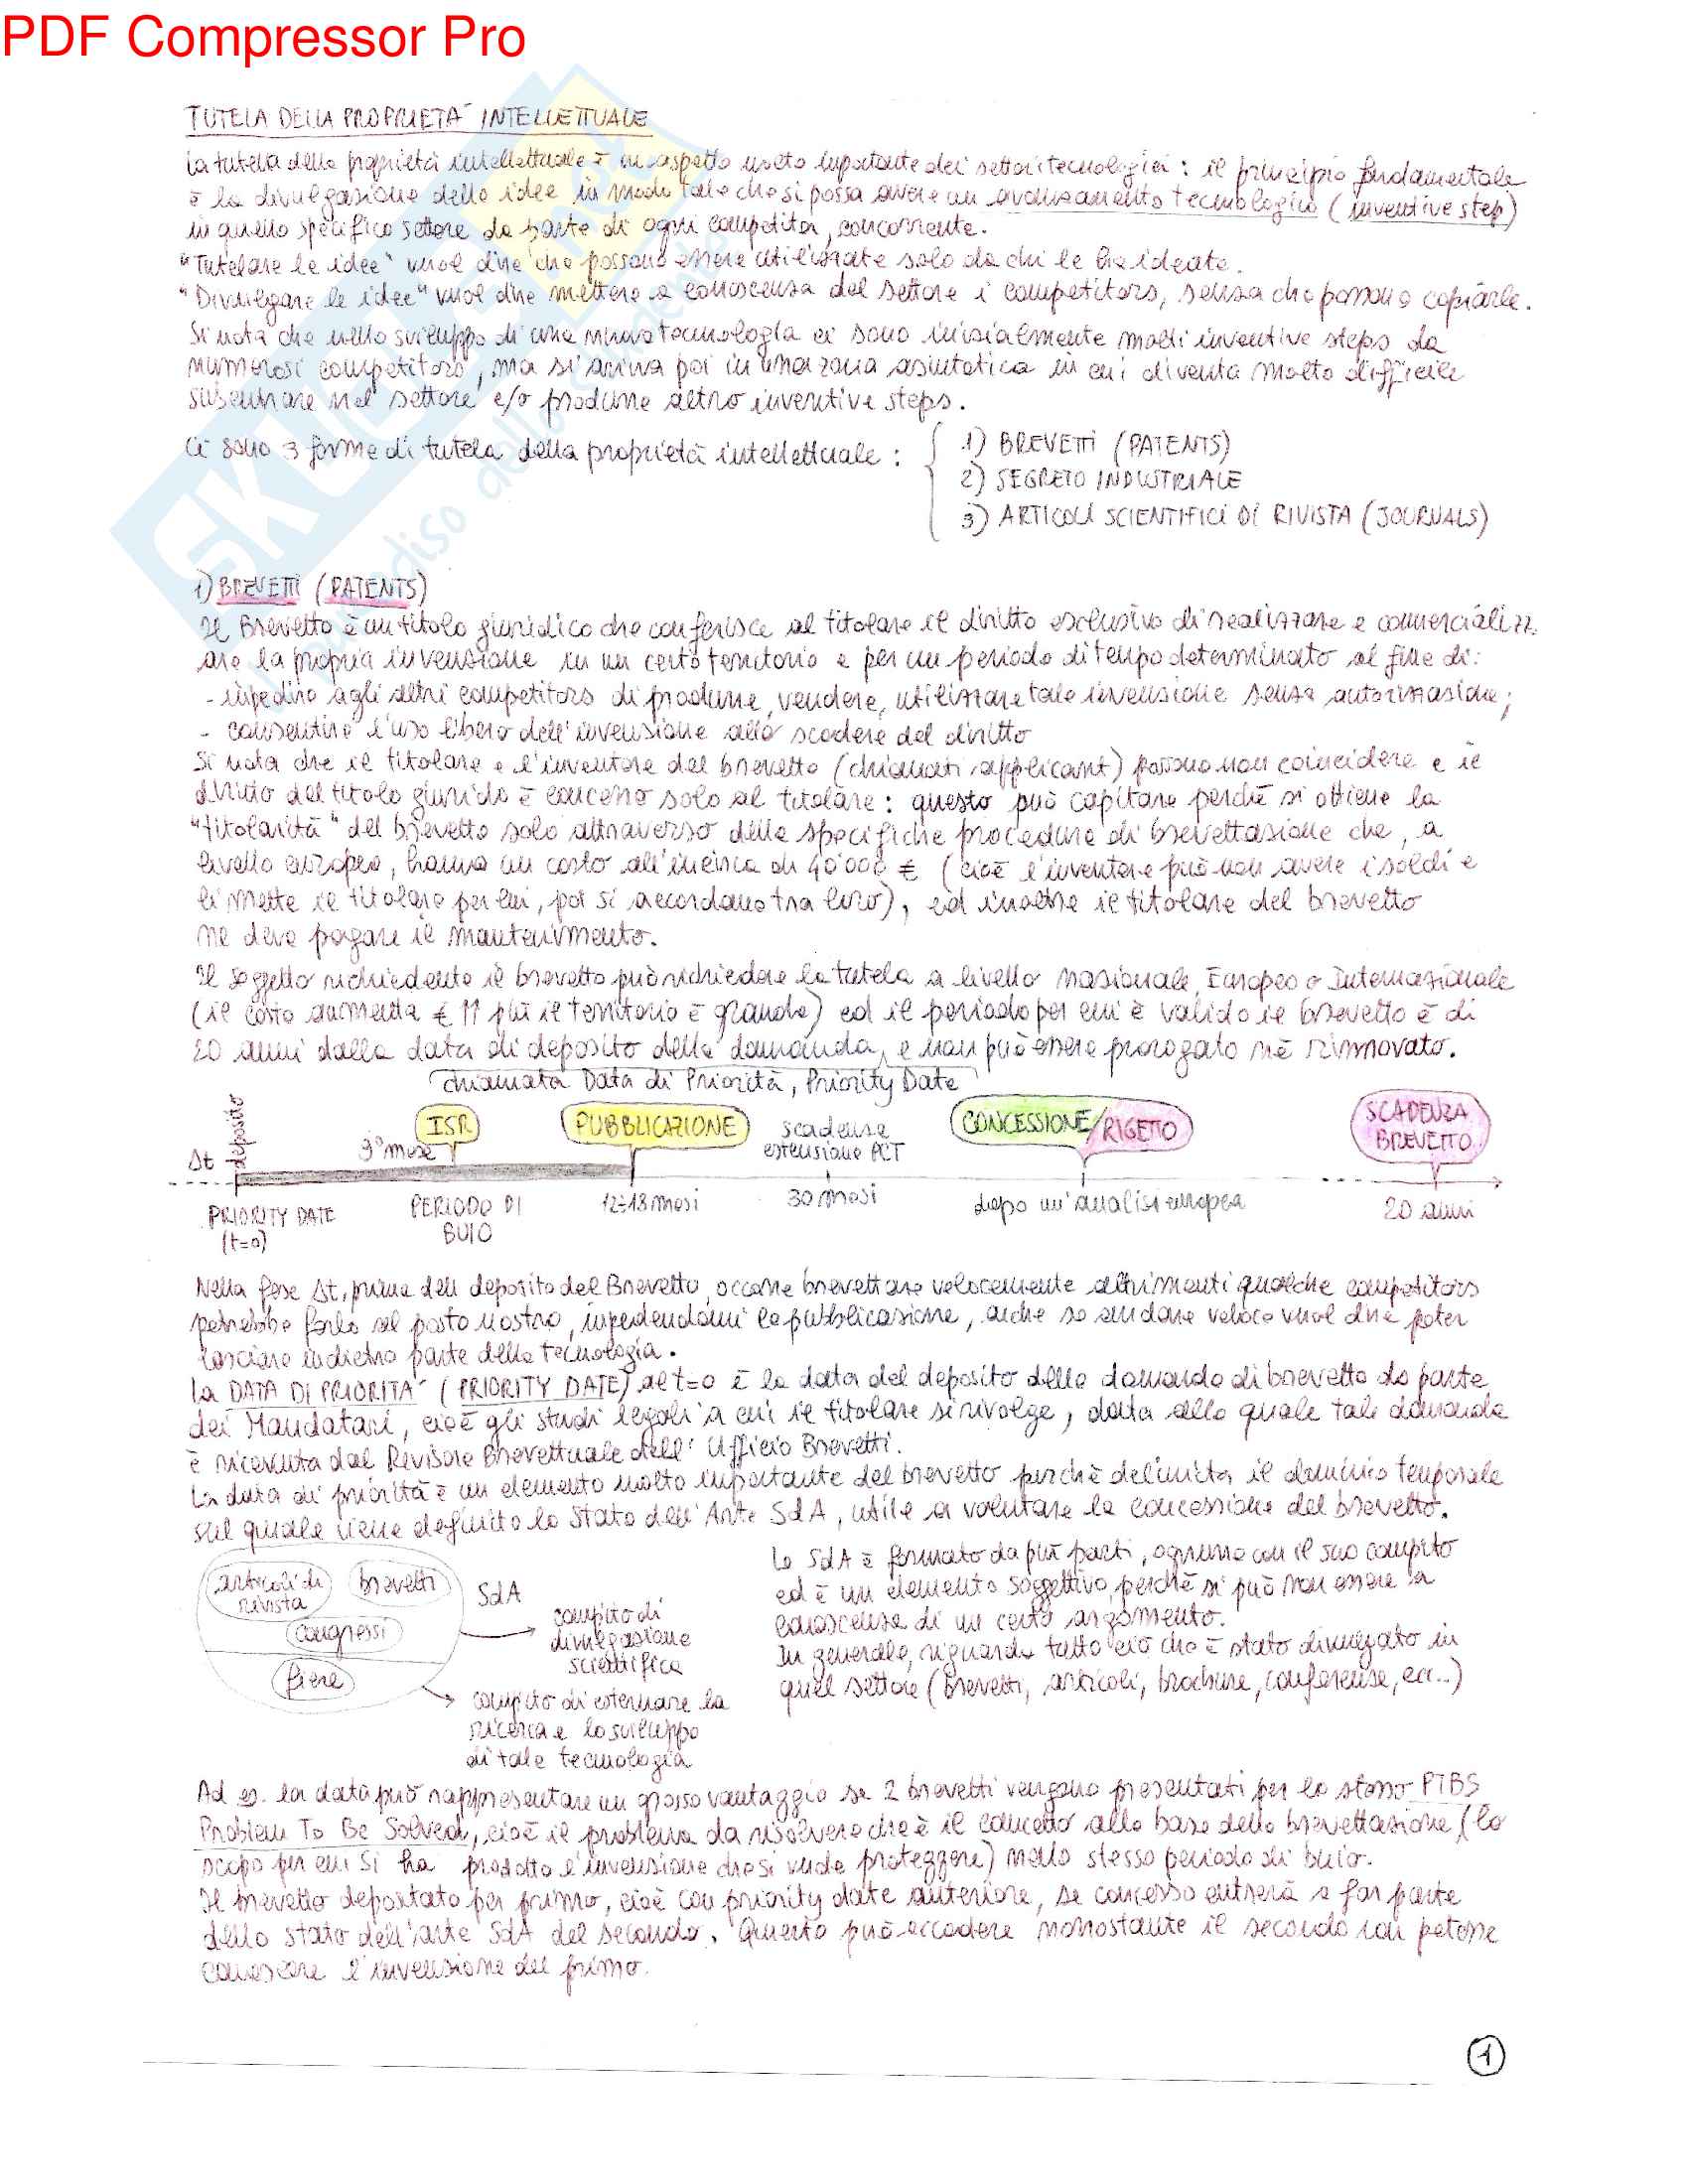 PDF Compressor Pro
TUTELA DELLA PROPRIETA' INTELLETTUALE
La tutela della proprietà intellettuale è un aspetto molto importante dei settori tecnologici: il principio fondamentale
è la divulgazione delle idee in modo tale che si possa avere un avanzamento tecnologico (inventive step)
in quello specifico settore da parte di ogni competitor, concorrente.
"Tutelare le idee" vuol dire che possono essere utilizzate solo da chi le ha ideate.
"Divulgare le idee" vuol dire mettere a conoscenza del settore i competitors, senza che possano copiarle.
Si nota che nello sviluppo di una nuova tecnologia ci sono inizialmente molti inventive steps da
numerosi competitors, ma si arriva poi in una zona asintotica in cui diventa molto difficile
subentrare nel settore e/o produrre altro inventive steps.
Ci sono 3 forme di tutela della proprietà intellettuale:
1) BREVETTI (PATENTS)
2) SEGRETO INDUSTRIALE
3) ARTICOLI SCIENTIFICI DI RIVISTA (JOURNALS)
1) BREVETTI (PATENTS)
Il Brevetto è un titolo giuridico che conferisce al titolare il diritto esclusivo di realizzare e commercializz
are la propria invenzione in un certo territorio e per un periodo di tempo determinato al fine di:
- impedire agli altri competitors di produrre, vendere, utilizzare tale invenzione senza autorizzazione;
- consentire l'uso libero dell'invenzione allo scadere del diritto
Si nota che il titolare e l'inventore del brevetto (chiamati applicant) possono non coincidere e il
diritto del titolo giuridico è concesso solo al titolare: questo può capitare perchè si ottiene la
"titolarità" del brevetto solo attraverso delle specifiche procedure di brevettazione che, a
livello europeo, hanno un costo all'incirca di 40'000 € (cioè l'inventore può non avere i soldi e
li mette il titolare per lui, poi si accordano tra loro), ed inoltre il titolare del brevetto
ne deve pagare il mantenimento.
Il soggetto richiedente il brevetto può richiedere la tutela a livello nazionale, Europeo o Internazionale
(il costo aumenta € ↑↑ più il territorio è grande) ed il periodo per cui è valido il brevetto è di
20 anni dalla data di deposito della domanda, e non può essere prorogato nè rinnovato.
chiamata Data di Priorità, Priority Date
Δt deposito 9° mese ISR PUBBLICAZIONE scadenza estensione PCT CONCESSIONE/RIGETTO SCADENZA BREVETTO
PRIORITY DATE (t=0) PERIODO DI BUIO 12÷18 mesi 30 mesi dopo un'analisi europea 20 anni
Nella fase Δt, prima del deposito del Brevetto, occorre brevettare velocemente altrimenti qualche competitors
potrebbe farlo al posto nostro, impedendomi la pubblicazione, anche se andare veloce vuol dire poter
lasciare indietro parte della tecnologia.
La DATA DI PRIORITA' (PRIORITY DATE) al t=0 è la data del deposito della domanda di brevetto da parte
dei Mandatari, cioè gli studi legali a cui il titolare si rivolge, data alla quale tale domanda
è ricevuta dal Revisore Brevettuale dell'Ufficio Brevetti.
La data di priorità è un elemento molto importante del brevetto perchè delimita il dominio temporale
sul quale viene definito lo Stato dell'Arte SdA, utile a valutare la concessione del brevetto.
articoli di rivista
brevetti
congressi
fiere
SdA
compito di
divulgazione
scientifica
compito di esternare la
ricerca e lo sviluppo
di tale tecnologia
Lo SdA è formato da più parti, ognuna con il suo compito
ed è un elemento soggettivo, perchè si può non essere a
conoscenza di un certo argomento.
In generale, riguarda tutto ciò che è stato divulgato in
quel settore (brevetti, articoli, brochure, conferenze, ecc...)
Ad es. la data può rappresentare un grosso vantaggio se 2 brevetti vengono presentati per lo stesso PTBS
Problem To Be Solved, cioè il problema da risolvere che è il concetto alla base della brevettazione (lo
scopo per cui si ha prodotto l'invenzione che si vuole proteggere) nello stesso periodo di buio.
Il brevetto depositato per primo, cioè con priority date anteriore, se concesso entrerà a far parte
dello stato dell'arte SdA del secondo. Questo può accadere nonostante il secondo non potesse
conoscere l'invenzione del primo.
1